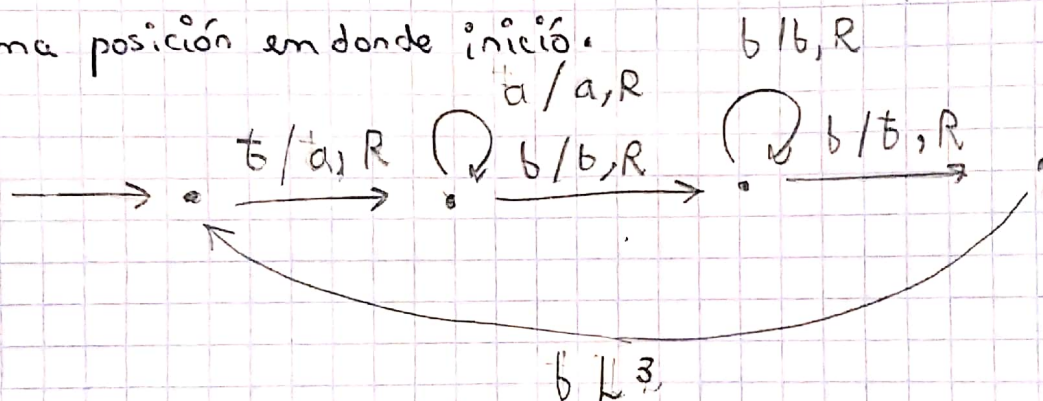 ma posición en donde inició.
b/b, R
a/a, R
ƀ/a, R
b/b, R
b/ƀ, R
b L 3